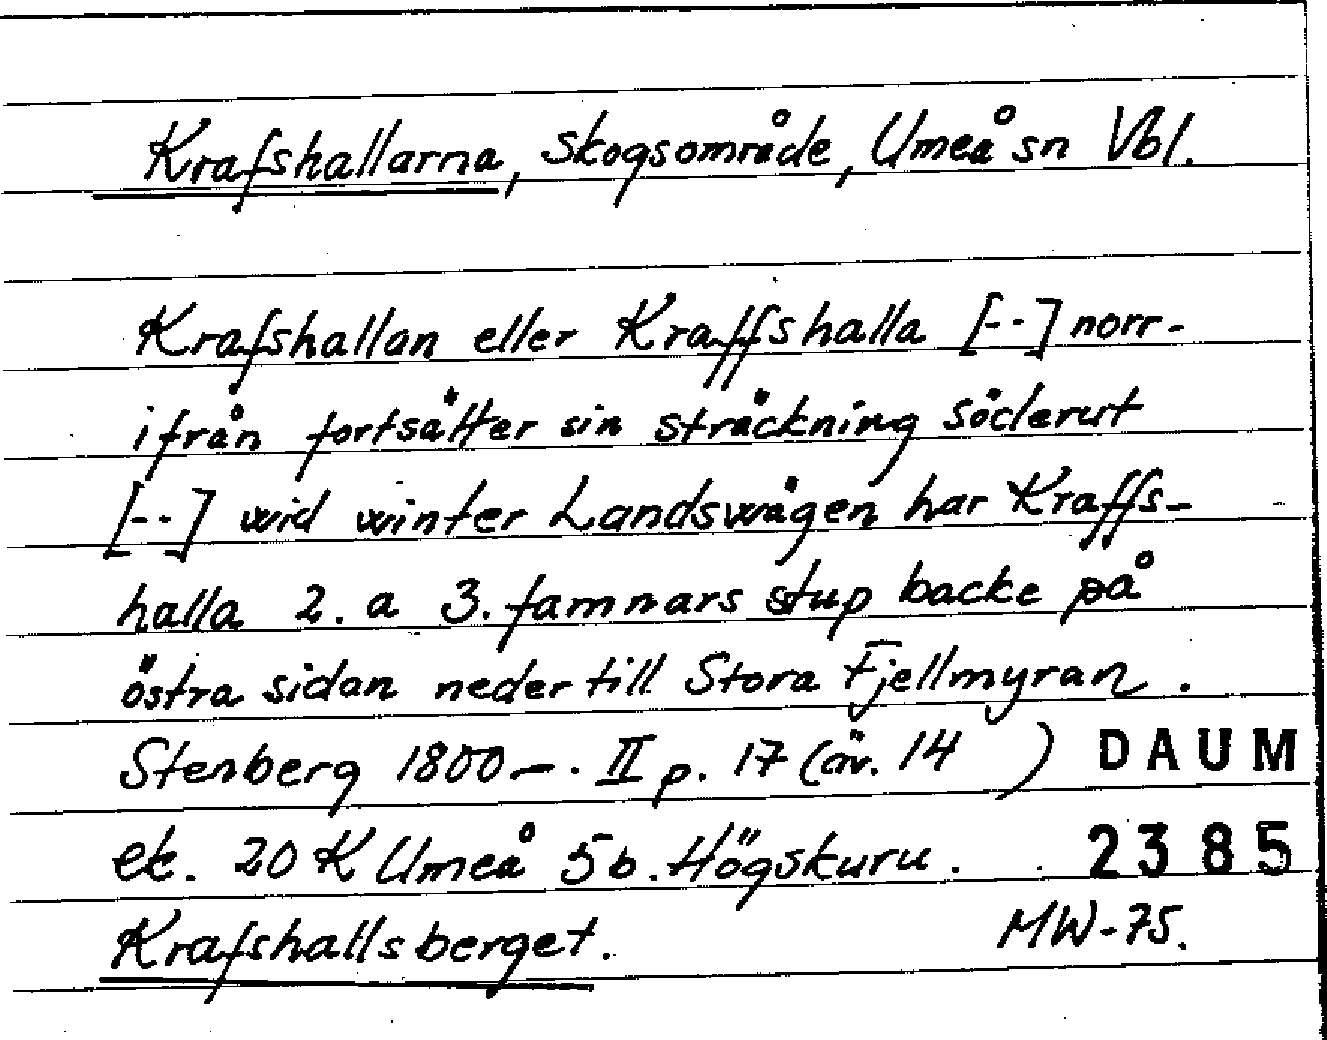 Krafshallarna, skogsområde, Umeå sn Vbl.
Krafshallan eller Kraffshalla [--] norr-
ifrån fortsätter sin sträckning söderut
[--] wid winter Landswägen har Kraffs-
halla 2. a 3. famnars stup backe på
östra sidan neder till Stora Fjellmyran.
Stenberg 1800-. II p. 17 (äv. 14 ) DAUM
ek. 20 K Umeå 5b. Högskuru. 2385
Krafshallsberget. MW-75.